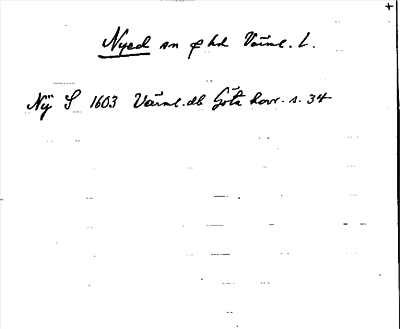 Nyed sn Fhd Värml. l.
Nÿ S 1603 Värml. db Göta hovr. s. 34